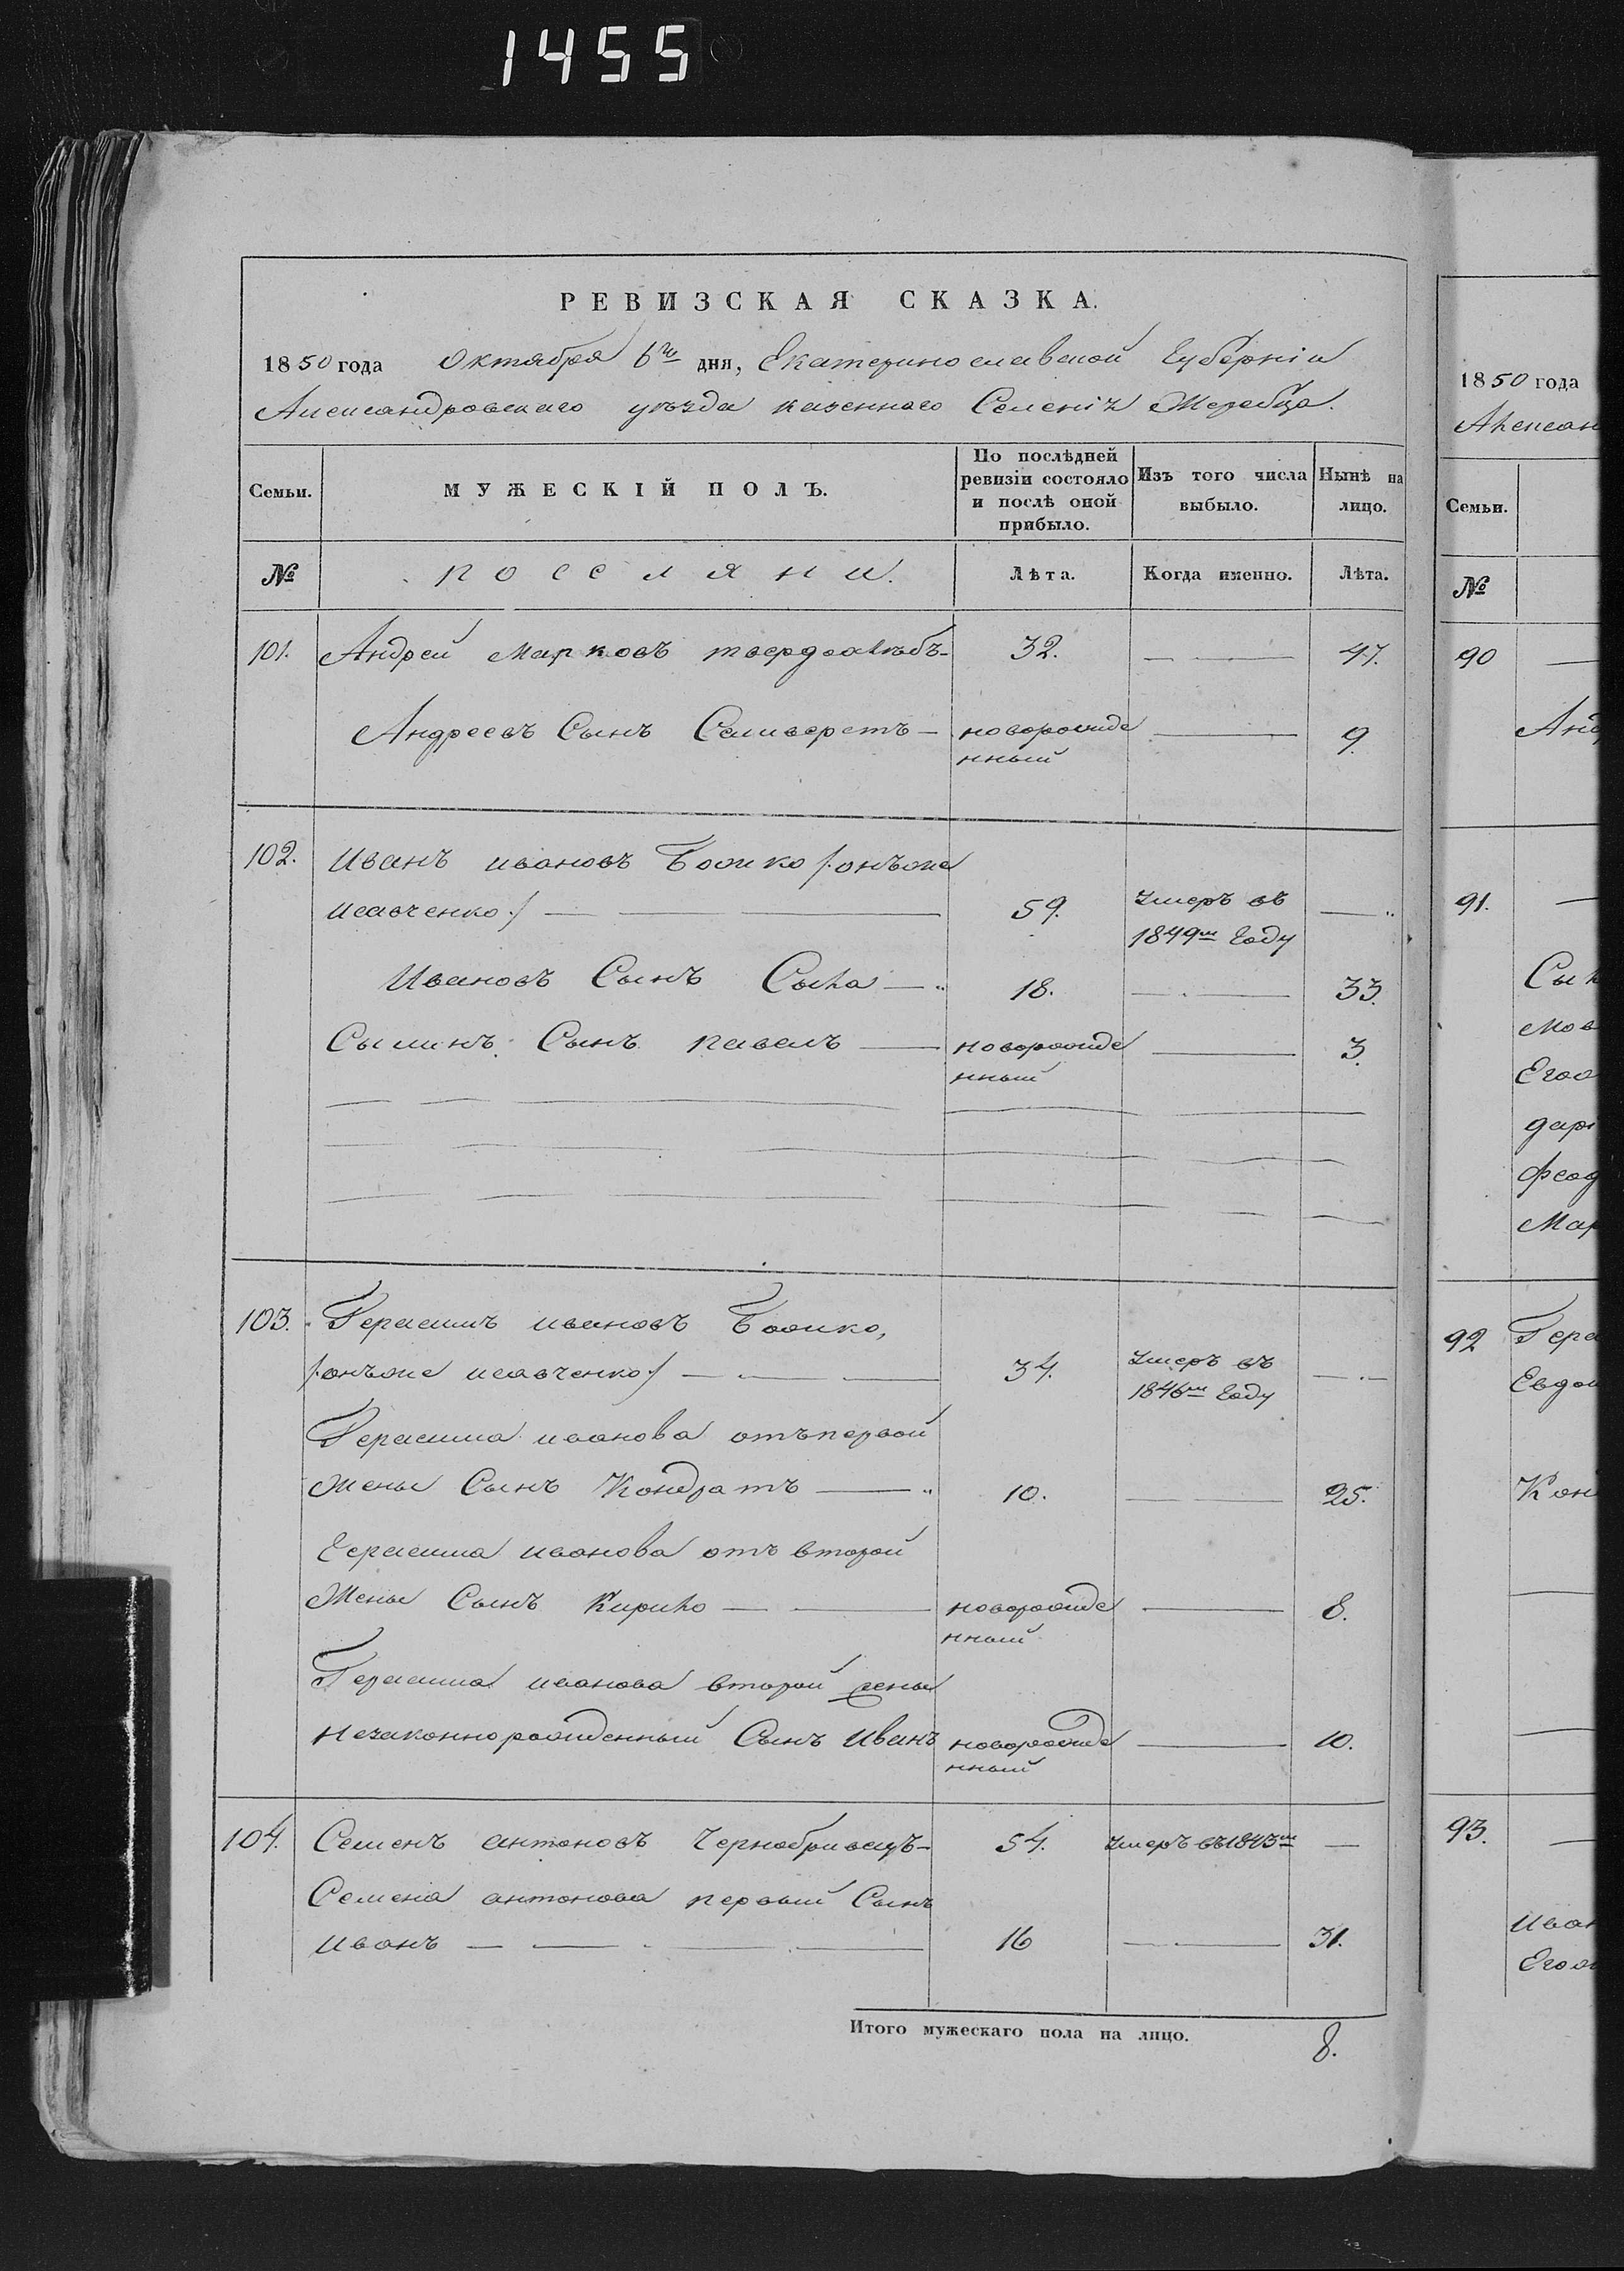 1455
РЕВИЗСКАЯ СКАЗКА.
1850 года Октября 6го дня, Екатеринославской Губерніи
Александровскаго уѣзда казеннаго Селенія Жеребца.
Семьи. МУЖЕСКІЙ ПОЛЪ. По послѣдней ревизіи состояло и послѣ оной прибыло. Изъ того числа выбыло. Нынѣ на лицо.
№ поселяни. Лѣта. Когда именно. Лѣта.
101. Андрей Марковъ твердохлѣбъ 32. 47.
Андреевъ Сынъ Селиверстъ новорожде 9.
нный
102. Иванъ ивановъ Бойко /:онъже
исавченко:/ 59. Умеръ въ
1849м Году
Ивановъ Сынъ Сыла 18. 33.
Сылинъ Сынъ павелъ новорожде 3.
нный
103. Герасимъ ивановъ Бойко,
/:онъже исавченко:/ 34. Умеръ въ
1846м Году
Герасима иванова отъпервой
Жены Сынъ Кондратъ 10. 25.
Герасима иванова отъ второй
Жены Сынъ Кирило новорожде 8.
нный
Герасима иванова второй жены
незаконнорожденный Сынъ Иванъ новорожде 10.
нный
104. Семенъ антоновъ Чернобривецъ 54. Умеръ въ 1843м
Семена антонова первый Сынъ
Иванъ 16 31.
Итого мужескаго пола на лицо. 8.
1850 года
Алексан
Семьи.
№
90
Анд
91.
Сыл
Мов
Его
дарі
феод
Мар
92 Гера
Евдо
Кон
93.
Иван
Его